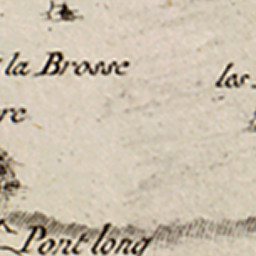 la Brosse
les
re
Pont long